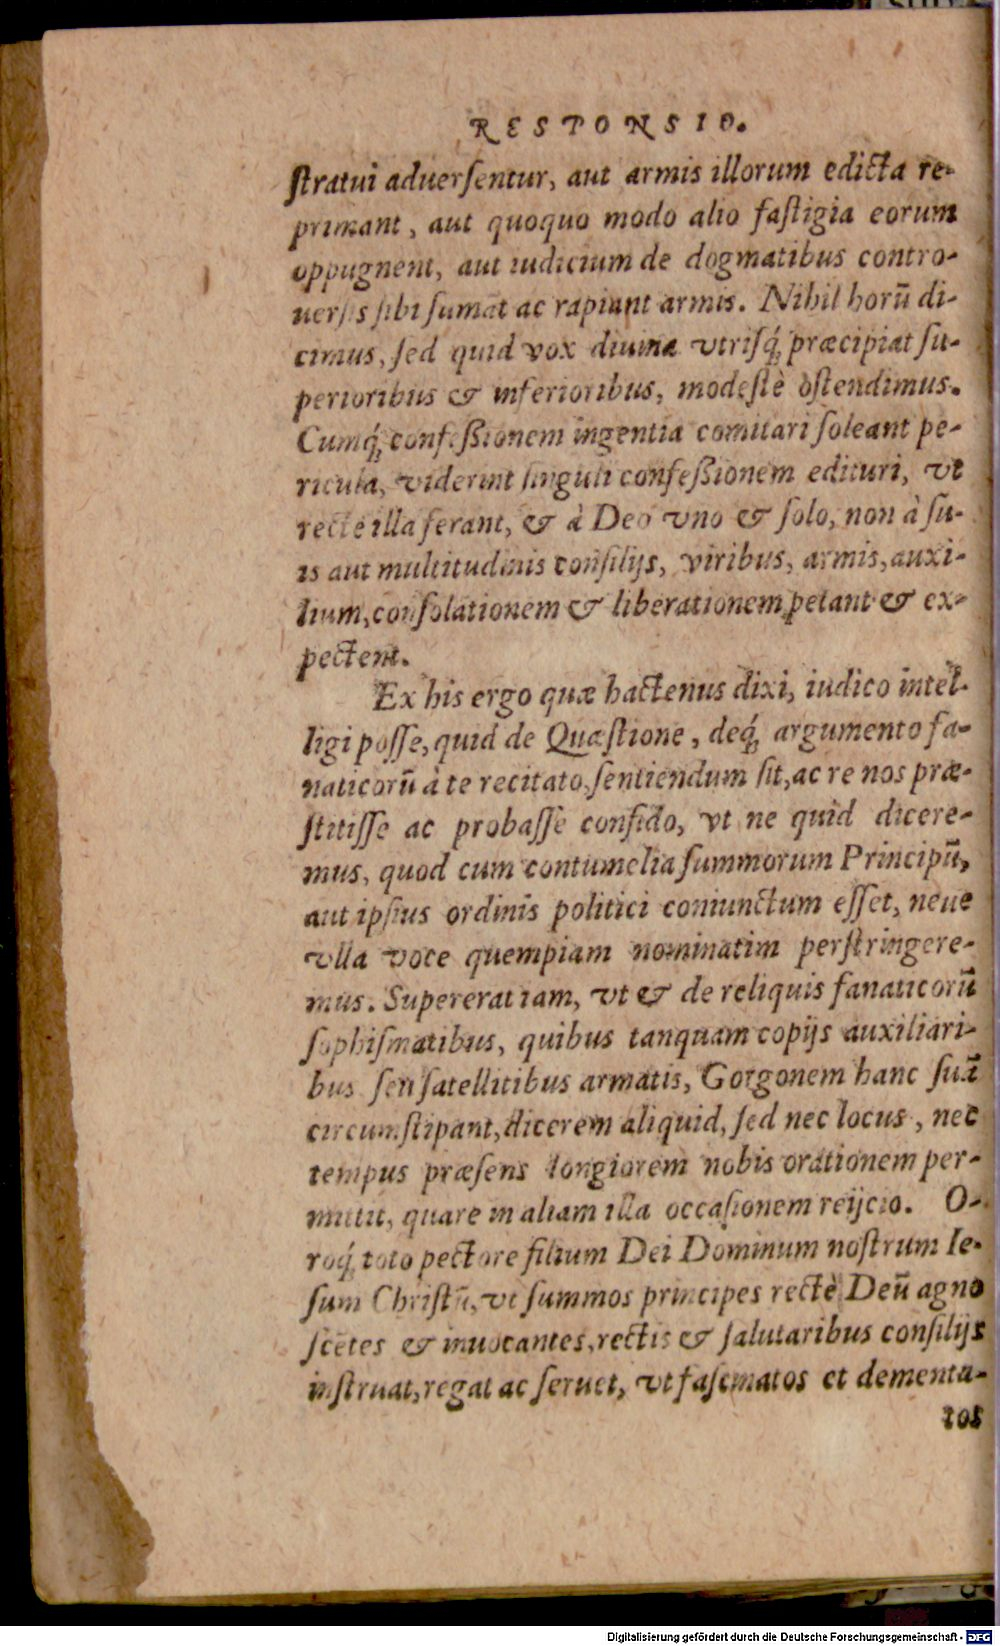 RESPONSIO.
ſtratui aduerſentur, aut armis illorum edicta re-
primant, aut quoquo modo alio faſtigia eorum
oppugnent, aut iudicium de dogmatibus contro-
uerſis ſibi ſumãt ac rapiant armis. Nihil horũ di-
cimus, ſed quid vox diuina vtriſq́; præcipiat ſu-
perioribus & inferioribus, modeſtè oſtendimus.
Cumq́; confeßionem ingentia comitari ſoleant pe-
ricula, viderint ſinguli confeßionem edituri, vt
rectè illa ferant, & à Deo vno & ſolo, non à ſu-
is aut multitudinis conſilijs, viribus, armis, auxi-
lium, conſolationem & liberationem petant & ex-
pectent.
Ex his ergo quæ hactenus dixi, iudico intel-
ligi poſſe, quid de Quæſtione, deq́; argumento fa-
naticorũ à te recitato, ſentiendum ſit, ac re nos præ-
ſtitiſſe ac probaſſe confido, vt ne quid dicere-
mus, quod cum contumelia ſummorum Principũ,
aut ipſius ordinis politici coniunctum eſſet, neue
vlla voce quempiam nominatim perſtringere-
mus. Supererat iam, vt & de reliquis fanaticorũ
ſophiſmatibus, quibus tanquam copijs auxiliari-
bus ſeu ſatellitibus armatis, Gorgonem hanc ſuã
circumſtipant, dicerem aliquid, ſed nec locus, nec
tempus præſens longiorem nobis orationem per-
mittit, quare in aliam illa occaſionem reijcio. O-
roq́; toto pectore filium Dei Dominum noſtrum Ie-
ſum Chriſtũ, vt ſummos principes rectè Deũ agno
ſcẽtes & inuocantes, rectis & ſalutaribus conſilijs
inſtruat, regat ac ſeruet, vt faſcinatos et dementa-
tos
Digitalisierung gefördert durch die Deutsche Forschungsgemeinschaft - DFG